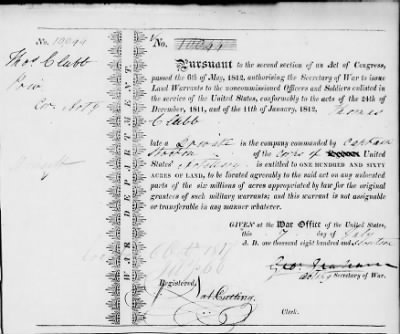 No. 10044
Thos Clubb
No. 10044
PURSUANT to the second section of an Act of Congress,
passed the 6th of May, 1812, authorising the Secretary of War to issue
Land Warrants to the noncommissioned Officers and Soldiers enlisted in
the service of the United States, conformably to the acts of the 24th of
December, 1811, and of the 11th of January, 1812, Thomas
Clubb
late a Private in the company commanded by Captain
of the Corps of United
States Artillery is entitled to ONE HUNDRED AND SIXTY
ACRES OF LAND, to be located agreeably to the said act on any unlocated
parts of the six millions of acres appropriated by law for the original
grantees of such military warrants; and this warrant is not assignable
or transferable in any manner whatever.
WAR DEPARTMENT.
GIVEN at the War Office of the United States,
this 7 day of July
A. D. one thousand eight hundred and
Geo: Graham
acting Secretary of War.
Registered,
Nat Cutting,
Clerk.